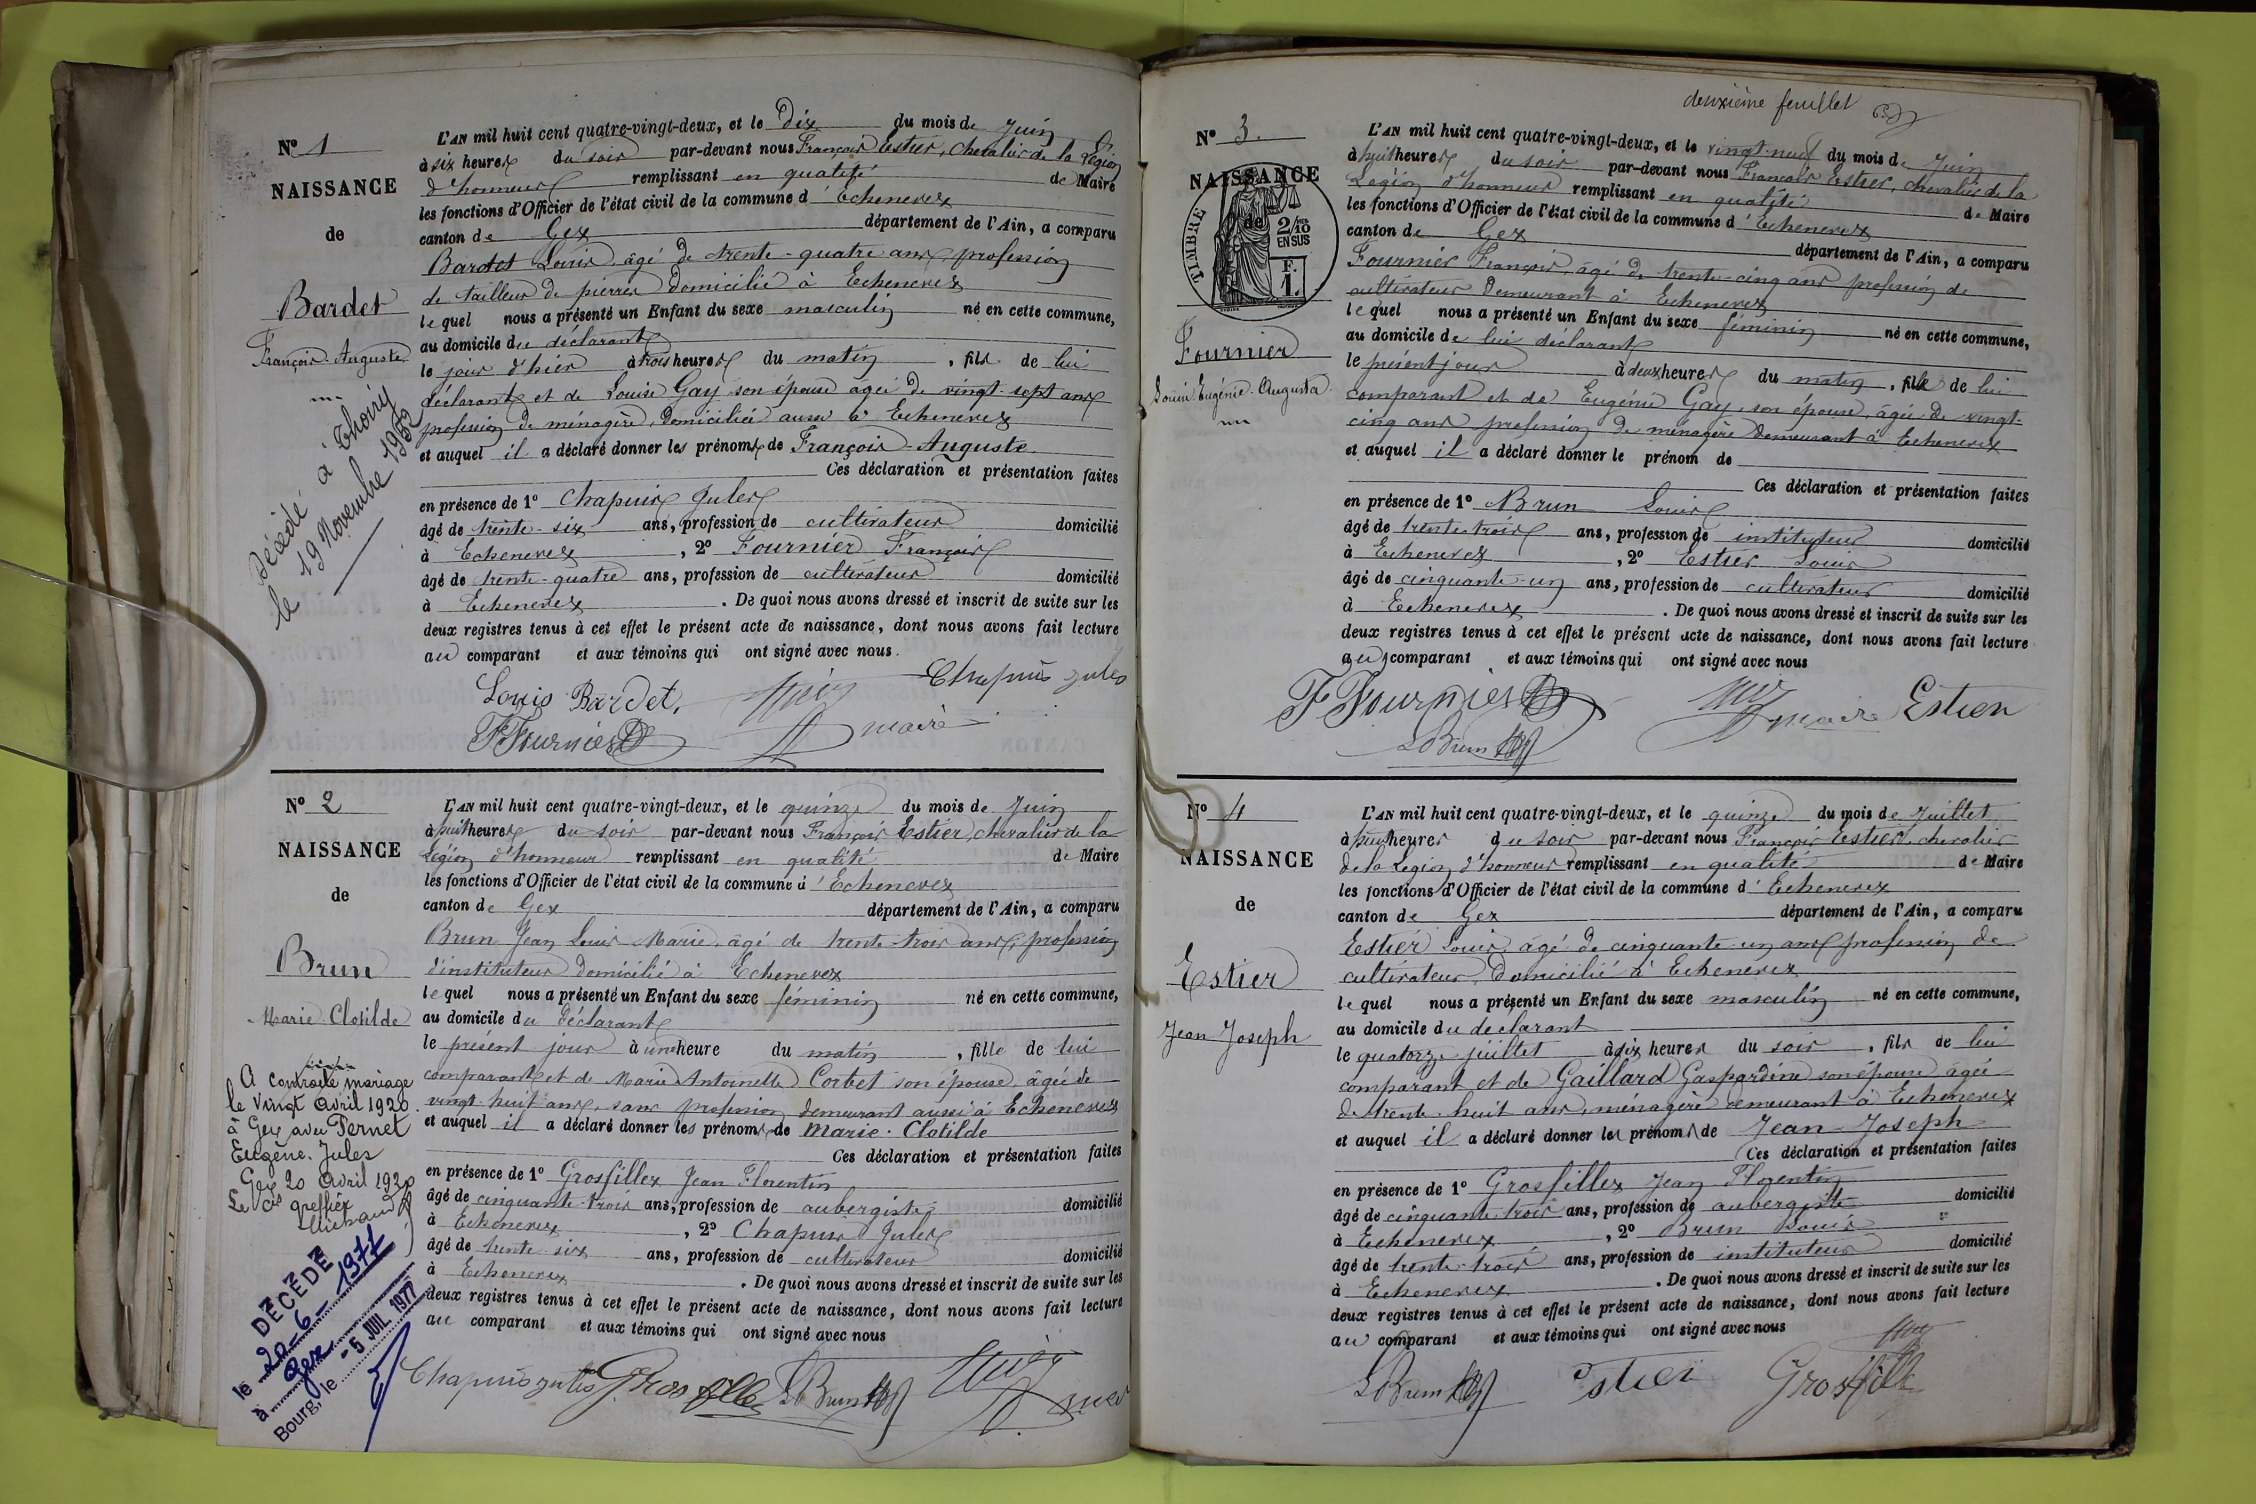 N° 1
NAISSANCE
de
Bardet
François-Auguste
Décédé à Thoiry
le 19 Novembre 1952
L'AN mil huit cent quatre-vingt-deux, et le Dix du mois de Juin
à six heures du soir par-devant nous François Estier, chevalier de la Légion
d'honneur remplissant en qualité de Maire
les fonctions d'Officier de l'état civil de la commune d'Echenevex
canton de Gex département de l'Ain, a comparu
Bardet Louis âgé de trente-quatre ans profession
de tailleur de pierres domicilié à Echenevex
lequel nous a présenté un Enfant du sexe masculin né en cette commune,
au domicile du déclarant
le jour d'hier à trois heures du matin, fils de lui
déclarant et de Louise Gay son épouse âgée de vingt-sept ans
profession de ménagère, domiciliée aussi à Echenevex
et auquel il a déclaré donner les prénoms de François-Auguste
Ces déclaration et présentation faites
en présence de 1° Chapuis Jules
âgé de trente-six ans, profession de cultivateur domicilié
à Echenevex, 2° Fournier François
âgé de trente-quatre ans, profession de cultivateur domicilié
à Echenevex. De quoi nous avons dressé et inscrit de suite sur les
deux registres tenus à cet effet le présent acte de naissance, dont nous avons fait lecture
au comparant et aux témoins qui ont signé avec nous.
Louis Bardet, Chapuis jules
F Fournier maire
N° 2
NAISSANCE
de
Brun
Marie-Clotilde
A contracté mariage
le vingt avril 1920
à Gex avec Pernet
Eugène-Jules
Gex 20 avril 1920
Le Cis greffier
DÉCÉDÉ
le 20-6-1977
à Gex
Bourg, le -5 JUIL 1977
L'AN mil huit cent quatre-vingt-deux, et le quinze du mois de Juin
à huit heures du soir par-devant nous François Estier, chevalier de la
Légion d'honneur remplissant en qualité de Maire
les fonctions d'Officier de l'état civil de la commune d'Echenevex
canton de Gex département de l'Ain, a comparu
Brun Jean Louis Marie, âgé de trente-trois ans, profession
d'instituteur domicilié à Echenevex
lequel nous a présenté un Enfant du sexe féminin né en cette commune,
au domicile du déclarant
le présent jour à une heure du matin, fille de lui
comparant et de Marie Antoinette Corbet son épouse, âgée de
vingt-huit ans, sans profession demeurant aussi à Echenevex
et auquel il a déclaré donner les prénoms de Marie-Clotilde
Ces déclaration et présentation faites
en présence de 1° Grosfillex Jean Florentin
âgé de cinquante-trois ans, profession de aubergiste domicilié
à Echenevex, 2° Chapuis Jules
âgé de trente-six ans, profession de cultivateur domicilié
à Echenevex. De quoi nous avons dressé et inscrit de suite sur les
deux registres tenus à cet effet le présent acte de naissance, dont nous avons fait lecture
au comparant et aux témoins qui ont signé avec nous
Chapuis jules Grosfillex L Brun
deuxième feuillet
N° 3.
NAISSANCE
de
TIMBRE
2/10
EN SUS
F.
1.
Fournier
Louise-Eugénie-Augusta
L'AN mil huit cent quatre-vingt-deux, et le vingt-neuf du mois de Juin
à huit heures du soir par-devant nous François Estier, chevalier de la
Légion d'honneur remplissant en qualité de Maire
les fonctions d'Officier de l'état civil de la commune d'Echenevex
canton de Gex département de l'Ain, a comparu
Fournier François, âgé de trente-cinq ans profession de
cultivateur demeurant à Echenevex
lequel nous a présenté un Enfant du sexe féminin né en cette commune,
au domicile de lui déclarant
le présent jour à deux heures du matin, fille de lui
comparant et de Eugénie Gay, son épouse, âgée de vingt-
cinq ans profession de ménagère demeurant à Echenevex
et auquel il a déclaré donner le prénom de
Ces déclaration et présentation faites
en présence de 1° Brun Louis
âgé de trente-trois ans, profession de instituteur domicilié
à Echenevex, 2° Estier Louis
âgé de cinquante-un ans, profession de cultivateur domicilié
à Echenevex. De quoi nous avons dressé et inscrit de suite sur les
deux registres tenus à cet effet le présent acte de naissance, dont nous avons fait lecture
au comparant et aux témoins qui ont signé avec nous
F Fournier maire Estier
L Brun
N° 4
NAISSANCE
de
Estier
Jean Joseph
L'AN mil huit cent quatre-vingt-deux, et le quinze du mois de Juillet
à huit heures du soir par-devant nous François Estier, chevalier
de la Légion d'honneur remplissant en qualité de Maire
les fonctions d'Officier de l'état civil de la commune d'Echenevex
canton de Gex département de l'Ain, a comparu
Estier Louis, âgé de cinquante-un ans profession de
cultivateur, domicilié à Echenevex
lequel nous a présenté un Enfant du sexe masculin né en cette commune,
au domicile du déclarant
le quatorze juillet à dix heures du soir, fils de lui
comparant et de Gaillard Gaspardine son épouse âgée
de trente-huit ans, ménagère demeurant à Echenevex
et auquel il a déclaré donner les prénoms de Jean-Joseph
Ces déclaration et présentation faites
en présence de 1° Grosfillex Jean Florentin
âgé de cinquante-trois ans, profession de aubergiste domicilié
à Echenevex, 2° Brun Louis
âgé de trente-trois ans, profession de instituteur domicilié
à Echenevex. De quoi nous avons dressé et inscrit de suite sur les
deux registres tenus à cet effet le présent acte de naissance, dont nous avons fait lecture
au comparant et aux témoins qui ont signé avec nous
L Brun Estier Grosfillex